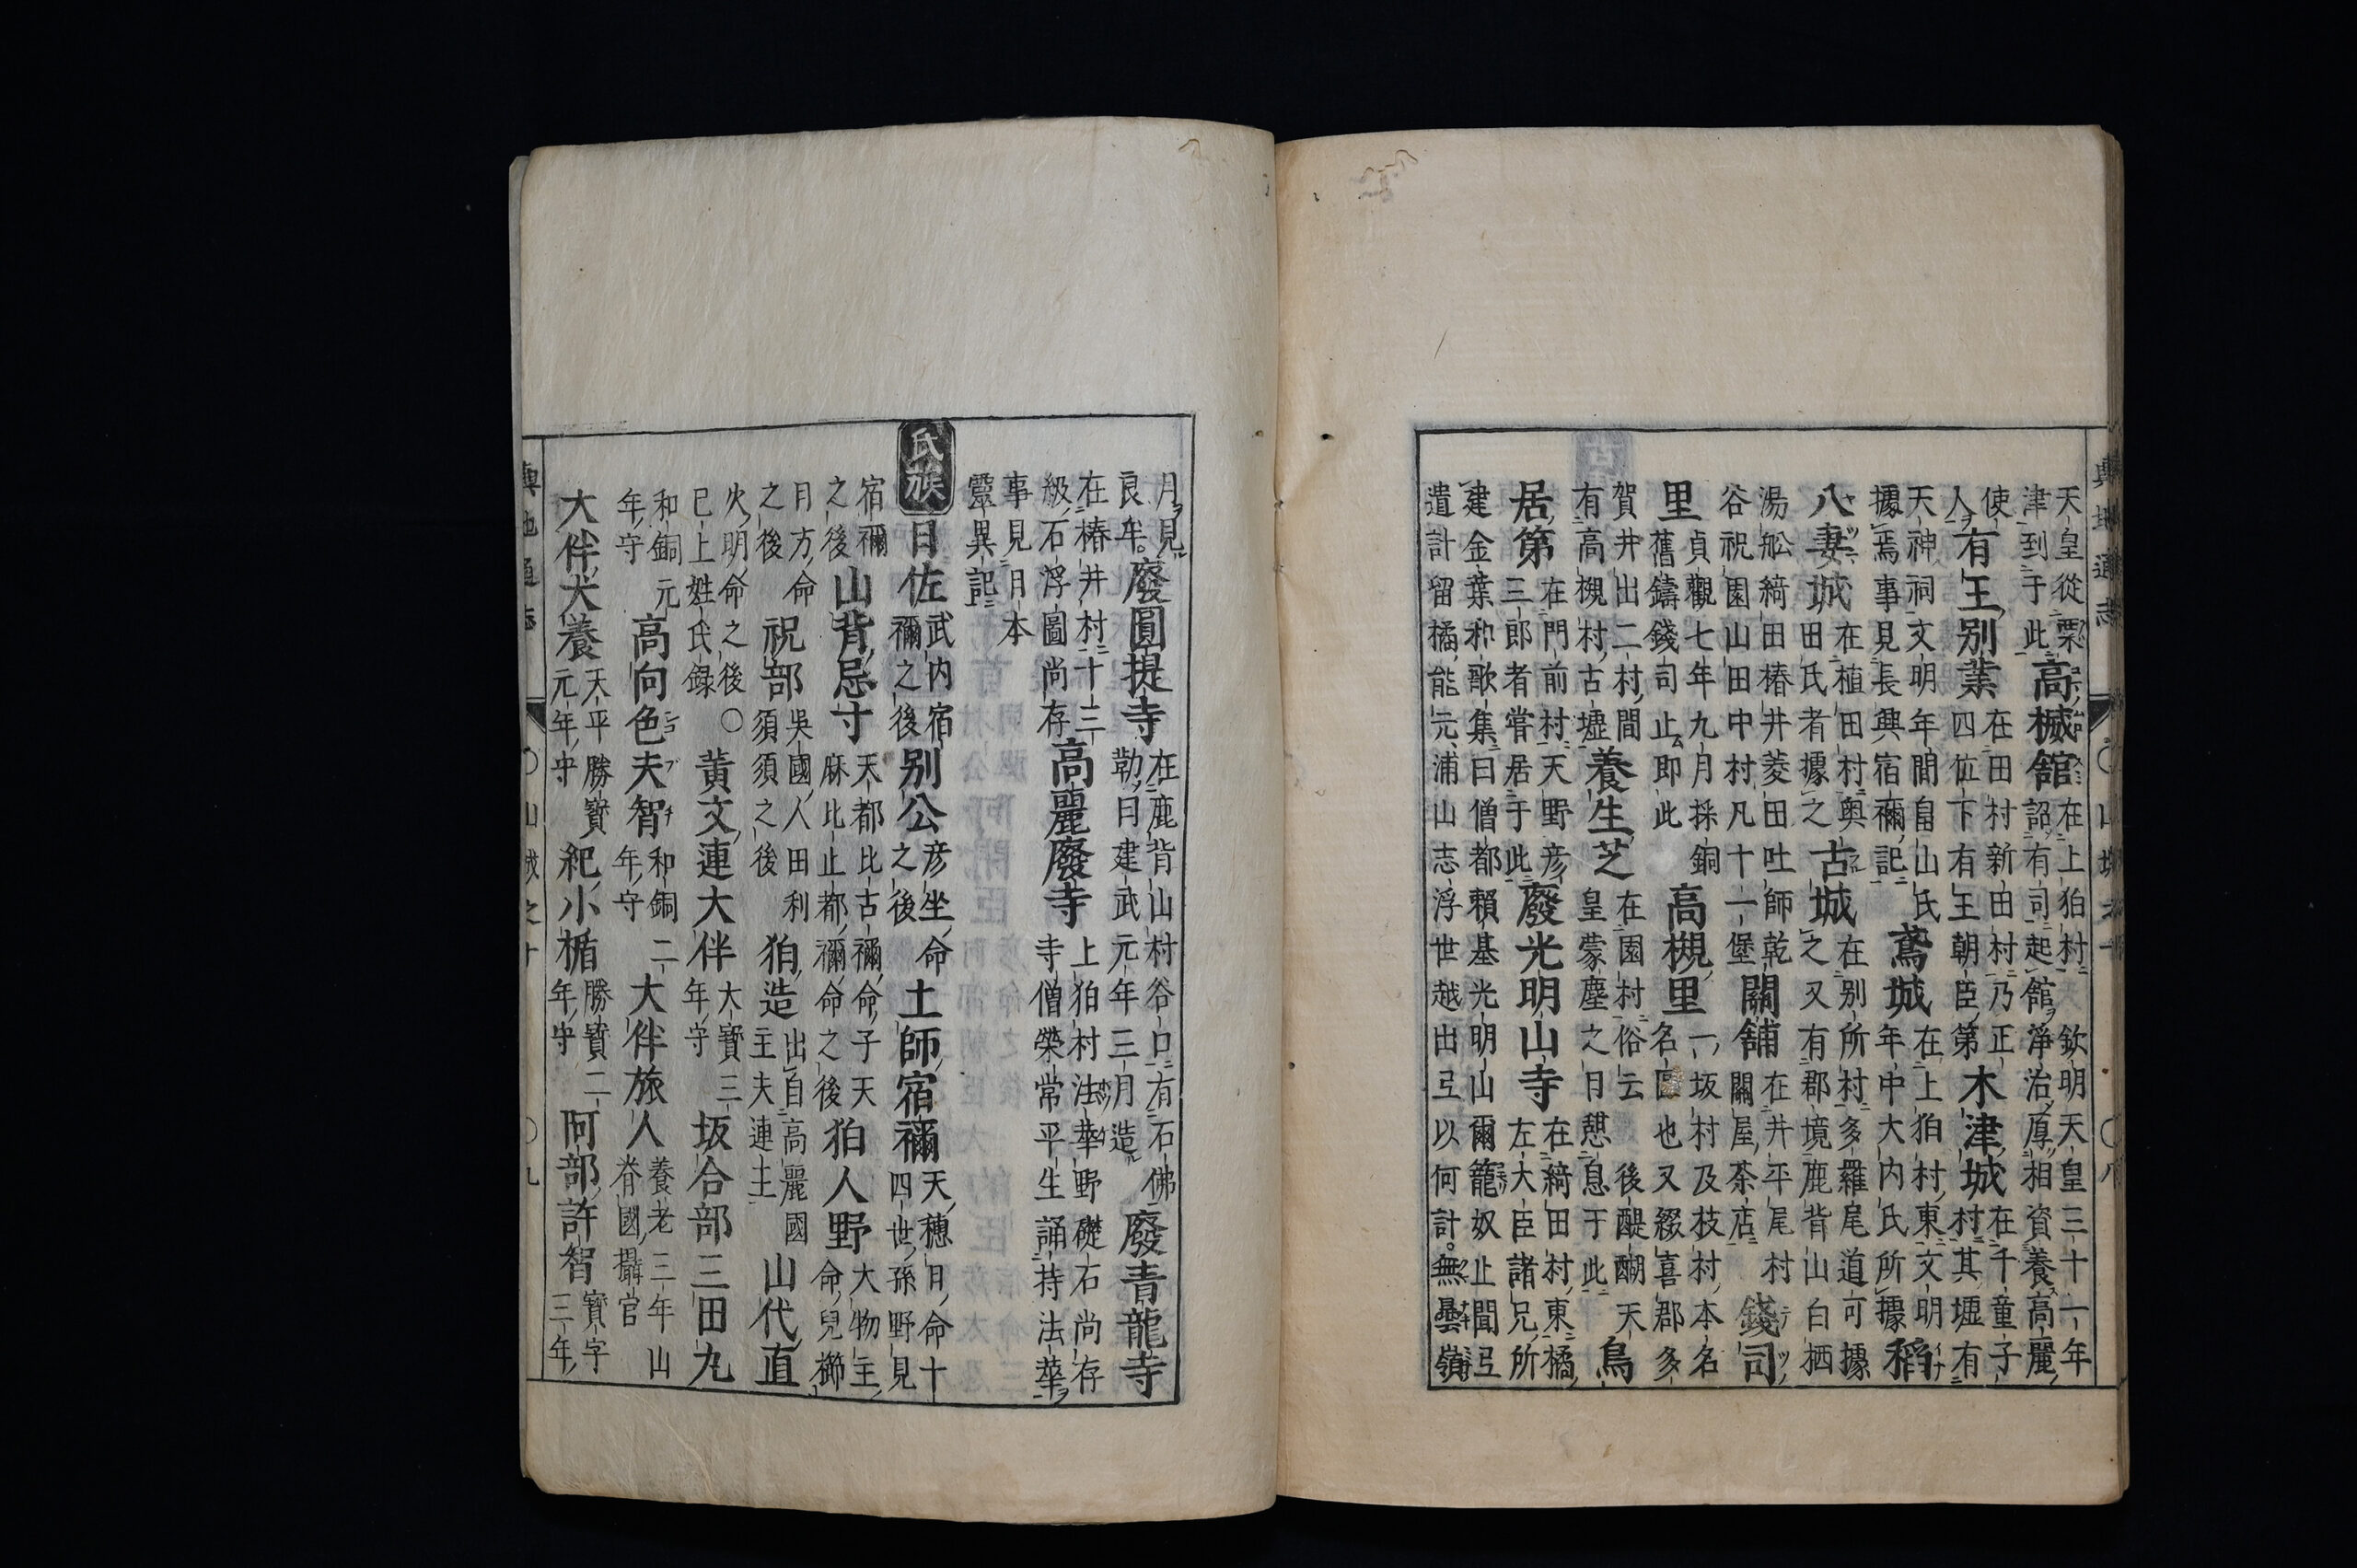 天皇從栗津到于此高楲館在上狛村欽明天皇三十一年詔有司起館淨治厚相資養高麗
使人有王別業在田村新田村乃正四位下有王朝臣第木津城在千童子村其墟有
天神祠文明年間自山氏據焉事見長興宿禰記鳶城在上狛村東文明年中大内氏所據稻
八妻城在植田村奥田氏者據之古城在別所村多羅尾道可據之又有郡境鹿背山白栖
湯舩綺田椿井菱田吐師乾谷祝園山田中村凡十一堡關舖在井平尾村關屋茶店錢司
里貞觀七年九月採銅舊鑄錢司止即此高槻里一坂村及枝村本名名區也又綴喜郡多
賀井出二村間有高槻村古墟養生芝在園村俗云後醍醐天皇蒙塵之日憩息于此鳥
居第在門前村天野彦三郎者嘗居于此廢光明山寺在綺田村東橘左大臣諸兄所
建金葉和歌集曰僧都賴基光明山爾籠奴止聞弖遣計留橘能元浦山志浮世越出弖以何計無曇嶺
月見良牟廢圓提寺在鹿背山村谷口有石佛勒曰建武元年三月造廢青龍寺
在椿井村十三級石浮圖尚存高麗廢寺上狛村法華野礎石尚存寺僧榮常平生誦持法華
事見日本靈異記
氏族日佐武内宿禰之後別公彦坐命之後土師宿禰天穗日命十四世孫野見
宿禰之後山背忌寸天都比古禰命子天麻比止都禰命之後狛人野大物主命兒櫛
月方命之後祝部吳國人田利須須之後狛造出自高麗國主夫連王山代直
火明命之後〇巳上姓氏録黄文連大伴大寶三年守坂合部三田九
和銅元年守高向色夫智和銅二年守大伴旅人養老三年山脊國攝官
大伴犬養天平勝寶元年守紀小楯勝寶二年守阿部許智寶字三年